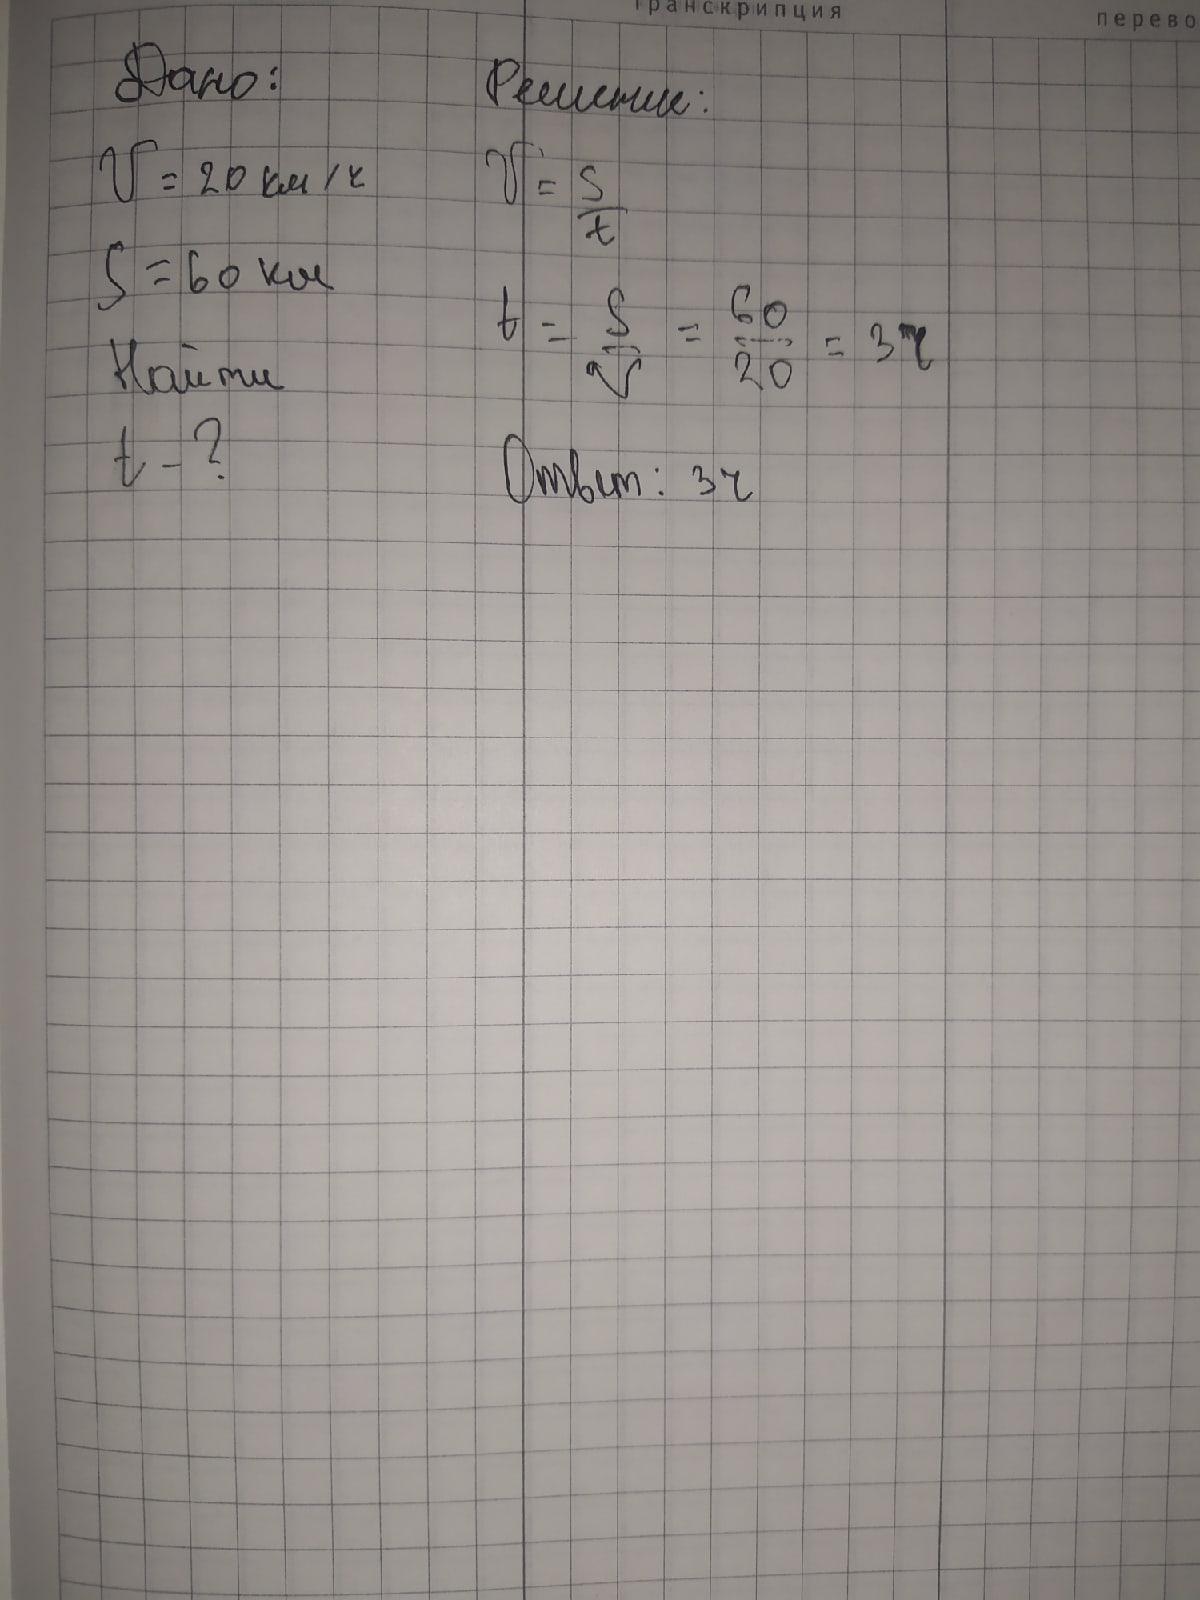 транскрипция
перево
Дано:
V = 20 км/ч
S = 60 км
Найти
t - ?
Решение:
V = S/t
t = S/V = 60/20 = 3ч
Ответ: 3ч